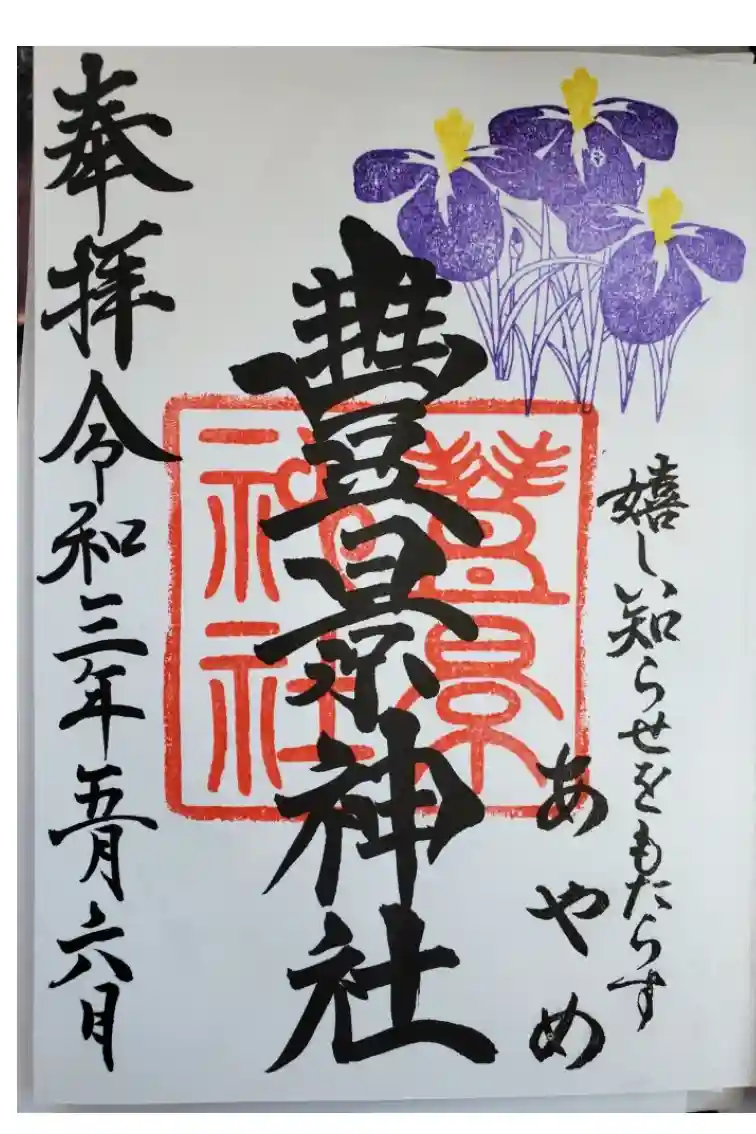 嬉しい知らせをもたらす
あやめ
豐景神社
豊景神社
奉拝 令和三年五月六日